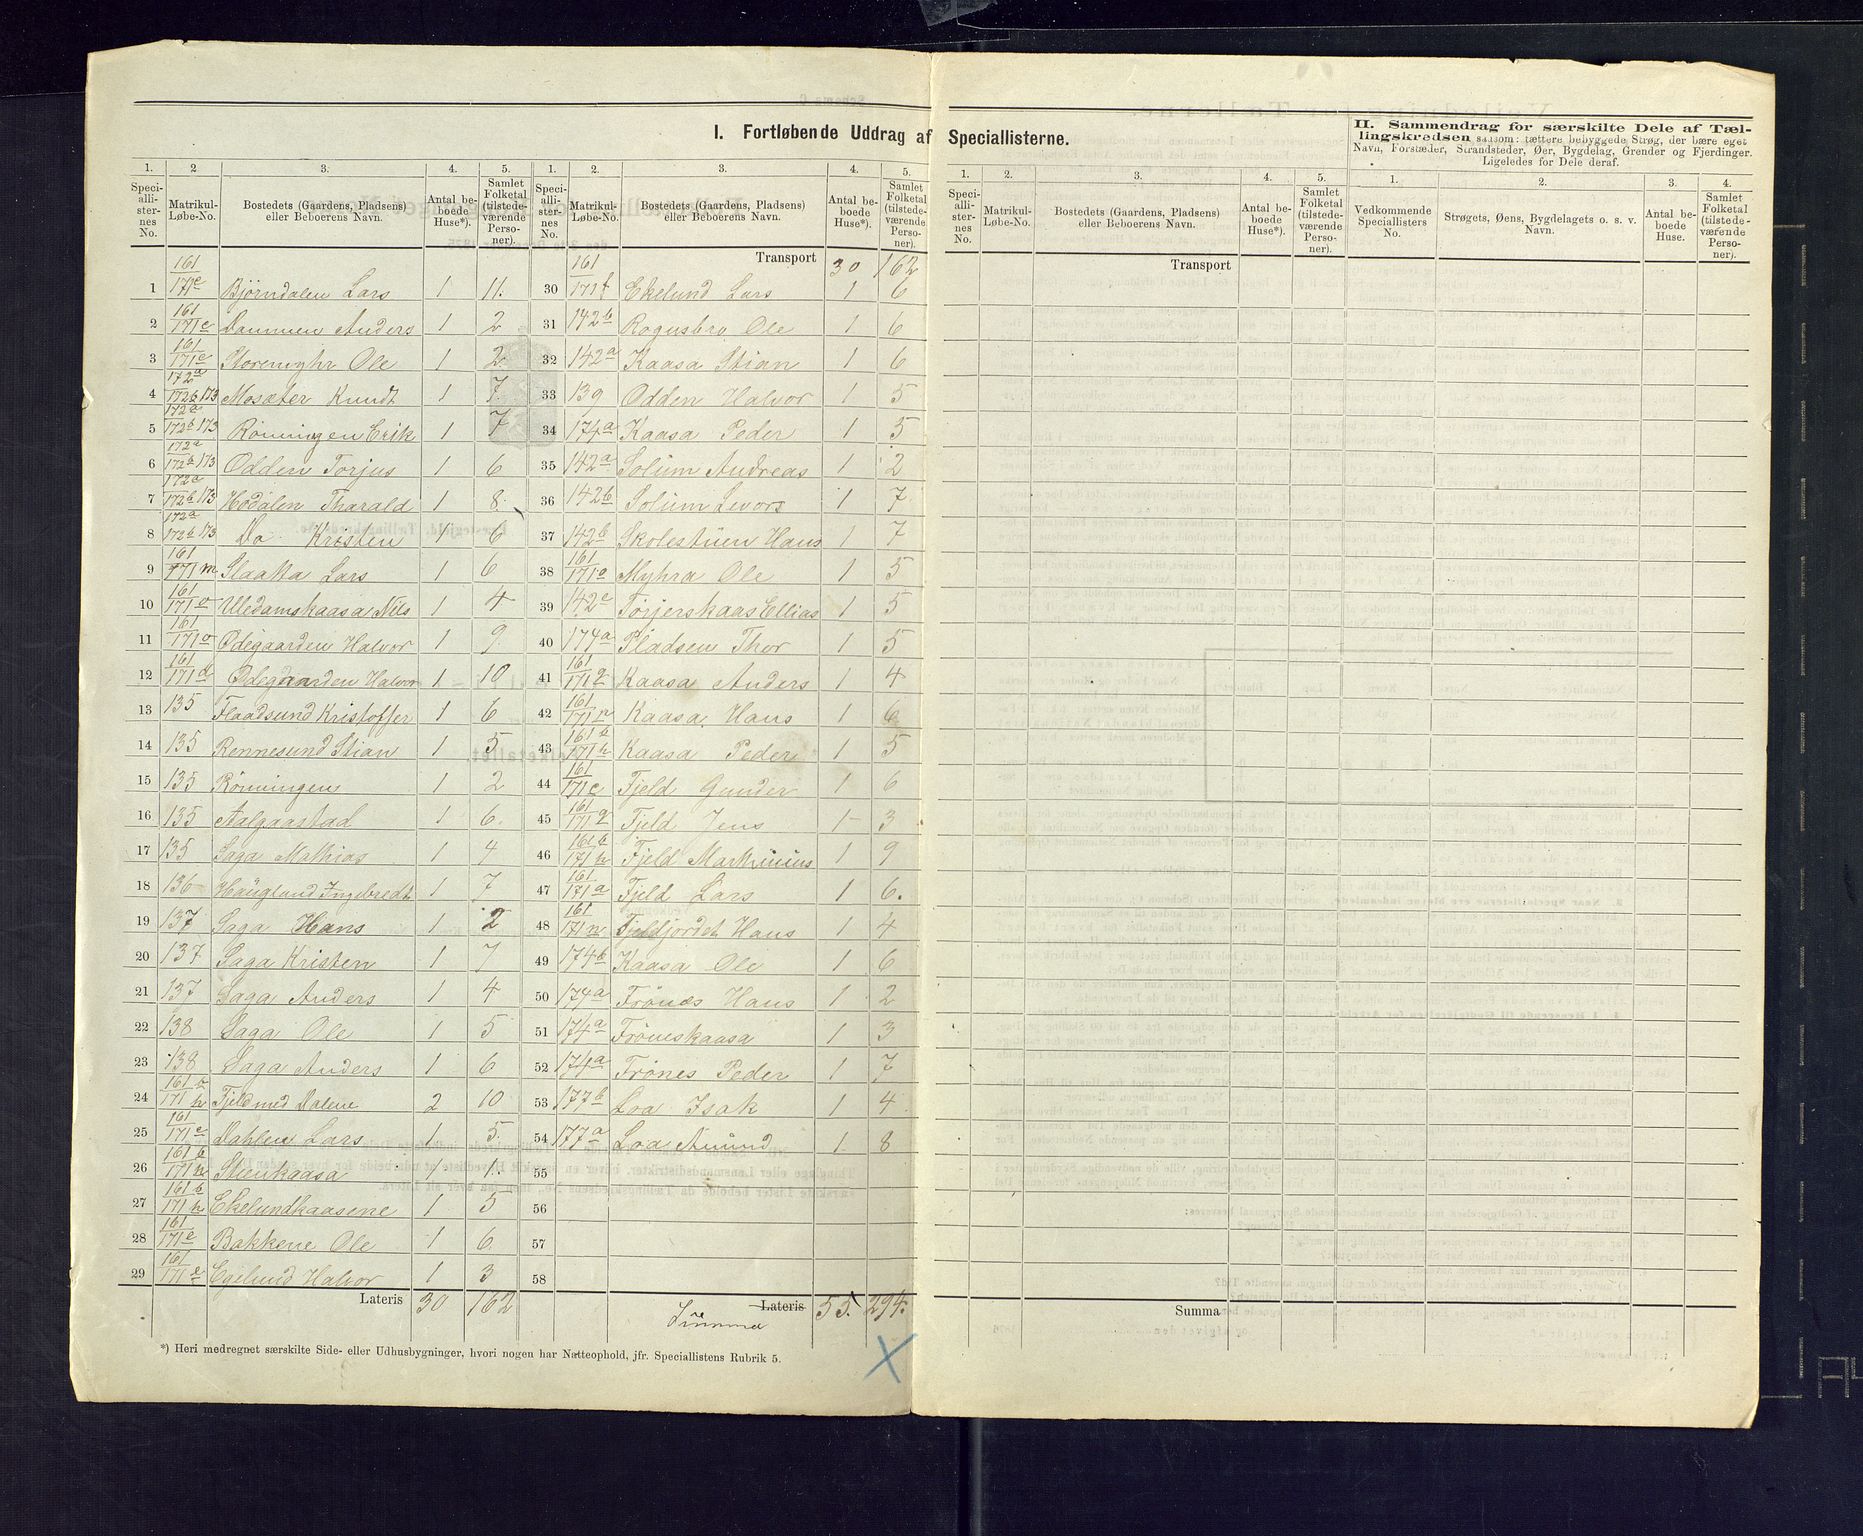 I. Fortløbende Uddrag af Speciallisterne.
II. Sammendrag for særskilte Dele af Tællingskredsen saasom: tættere bebyggede Strøg, der bære eget
Navn, Forstæder, Strandsteder, Øer, Bygdelag, Grender og Fjerdinger.
Ligeledes for Dele deraf.
1. 2. 3. 4. 5. 1. 2. 3. 4. 5. 1. 2. 3. 4. 5. 1. 2. 3. 4.
Speciallisternes No. Matrikul-Løbe-No. Bostedets (Gaardens, Pladsens) eller Beboerens Navn. Antal beboede Huse*). Samlet Folketal (tilstedeværende Personer).
Speciallisternes No. Matrikul-Løbe-No. Bostedets (Gaardens, Pladsens) eller Beboerens Navn. Antal beboede Huse*). Samlet Folketal (tilstedeværende Personer).
Speciallisternes No. Matrikul-Løbe-No. Bostedets (Gaardens, Pladsens) eller Beboerens Navn. Antal beboede Huse*). Samlet Folketal (tilstedeværende Personer).
Vedkommende Speciallisters No. Strøgets, Øens, Bygdelagets o. s. v. Navn. Antal beboede Huse. Samlet Folketal (tilstedeværende Personer).
1 161/171e Bjørndalen Lars 1 11.
2 161/171e Dammen Anders 1 2
3 161/171e Storemyhr Ole 1 2
4 172a/172b 173 Mosæter Knudt 1 7.
5 172a/172b 173 Rønningen Erik 1 7
6 172a/172b 173 Odden Torjus 1 6
7 172a/172b 173 Hodalen Tharald 1 8.
8 172a/172b 173 Do Kristen 1 6
9 161/171m Slaatta Lars 1 6
10 161/171o Uledamskaasa Nils 1 4
11 161/171o Ødegaarden Halvor 1 9.
12 161/171d Ødegaarden Halvor 1 10
13 135 Flaadsund Kristoffer 1 6
14 135 Rennesund Stian 1 5
15 135 Rønningen 1 2
16 135 Aalgaastad 1 6.
17 135 Saga Mathias 1 4
18 136 Haugland Ingebredt 1 7
19 137 Saga Hans 1 2
20 137 Saga Kristen 1 7
21 137 Saga Anders 1 4
22 138 Saga Ole 1 5
23 138 Saga Anders 1 6
24 161b/171h Fjeld med Dalene 2 10
25 161/171e Dahlen Lars 1 5.
26 161b/171h Stenkaasa 1 1.
27 161b/171h Ekelundkaasene 1 5
28 161/171e Bakkene Ole 1 6.
29 161/171e Egelund Halvor 1 3
Lateris 30 162
Transport 30 162
30 161/171f Ekelund Lars 1 6
31 142b Rogusbro Ole 1 6
32 142a Kaasa Stian 1 6
33 139 Odden Halvor 1 5
34 174a Kaasa Peder 1 5
35 142a Solum Andreas 1 2
36 142b Solum Levors 1 7
37 142b Skolestuen Hans 1 7
38 161/171a Myhra Ole 1 5
39 142c Torjerskaas Ellias 1 5
40 174a Pladsen Thor 1 5
41 161/171g Kaasa Anders 1 4
42 161/171n Kaasa Hans 1 6
43 161b/171h Kaasa Peder 1 5
44 161/171c Fjeld Gunder 1 6
45 161/171g Fjeld Jens 1 3
46 161b/171h Fjeld Marthinius 1 9
47 161/171a Fjeld Lars 1 6.
48 161/171n Fjeldjordet Hans 1 4
49 174b Kaasa Ole 1 6
50 174a Frønæs Hans 1 2
51 174a Frøneskaasa 1 3
52 174a Frønes Peder 1 7
53 177b Loa Isak 1 4
54 177a Loa Amund 1. 8
55
56
57
58
Lateris Summa 55. 294.
Transport
Summa
*) Heri medregnet særskilte Side- eller Udhusbygninger, hvori nogen har Natteophold, jfr. Speciallistens Rubrik 5.